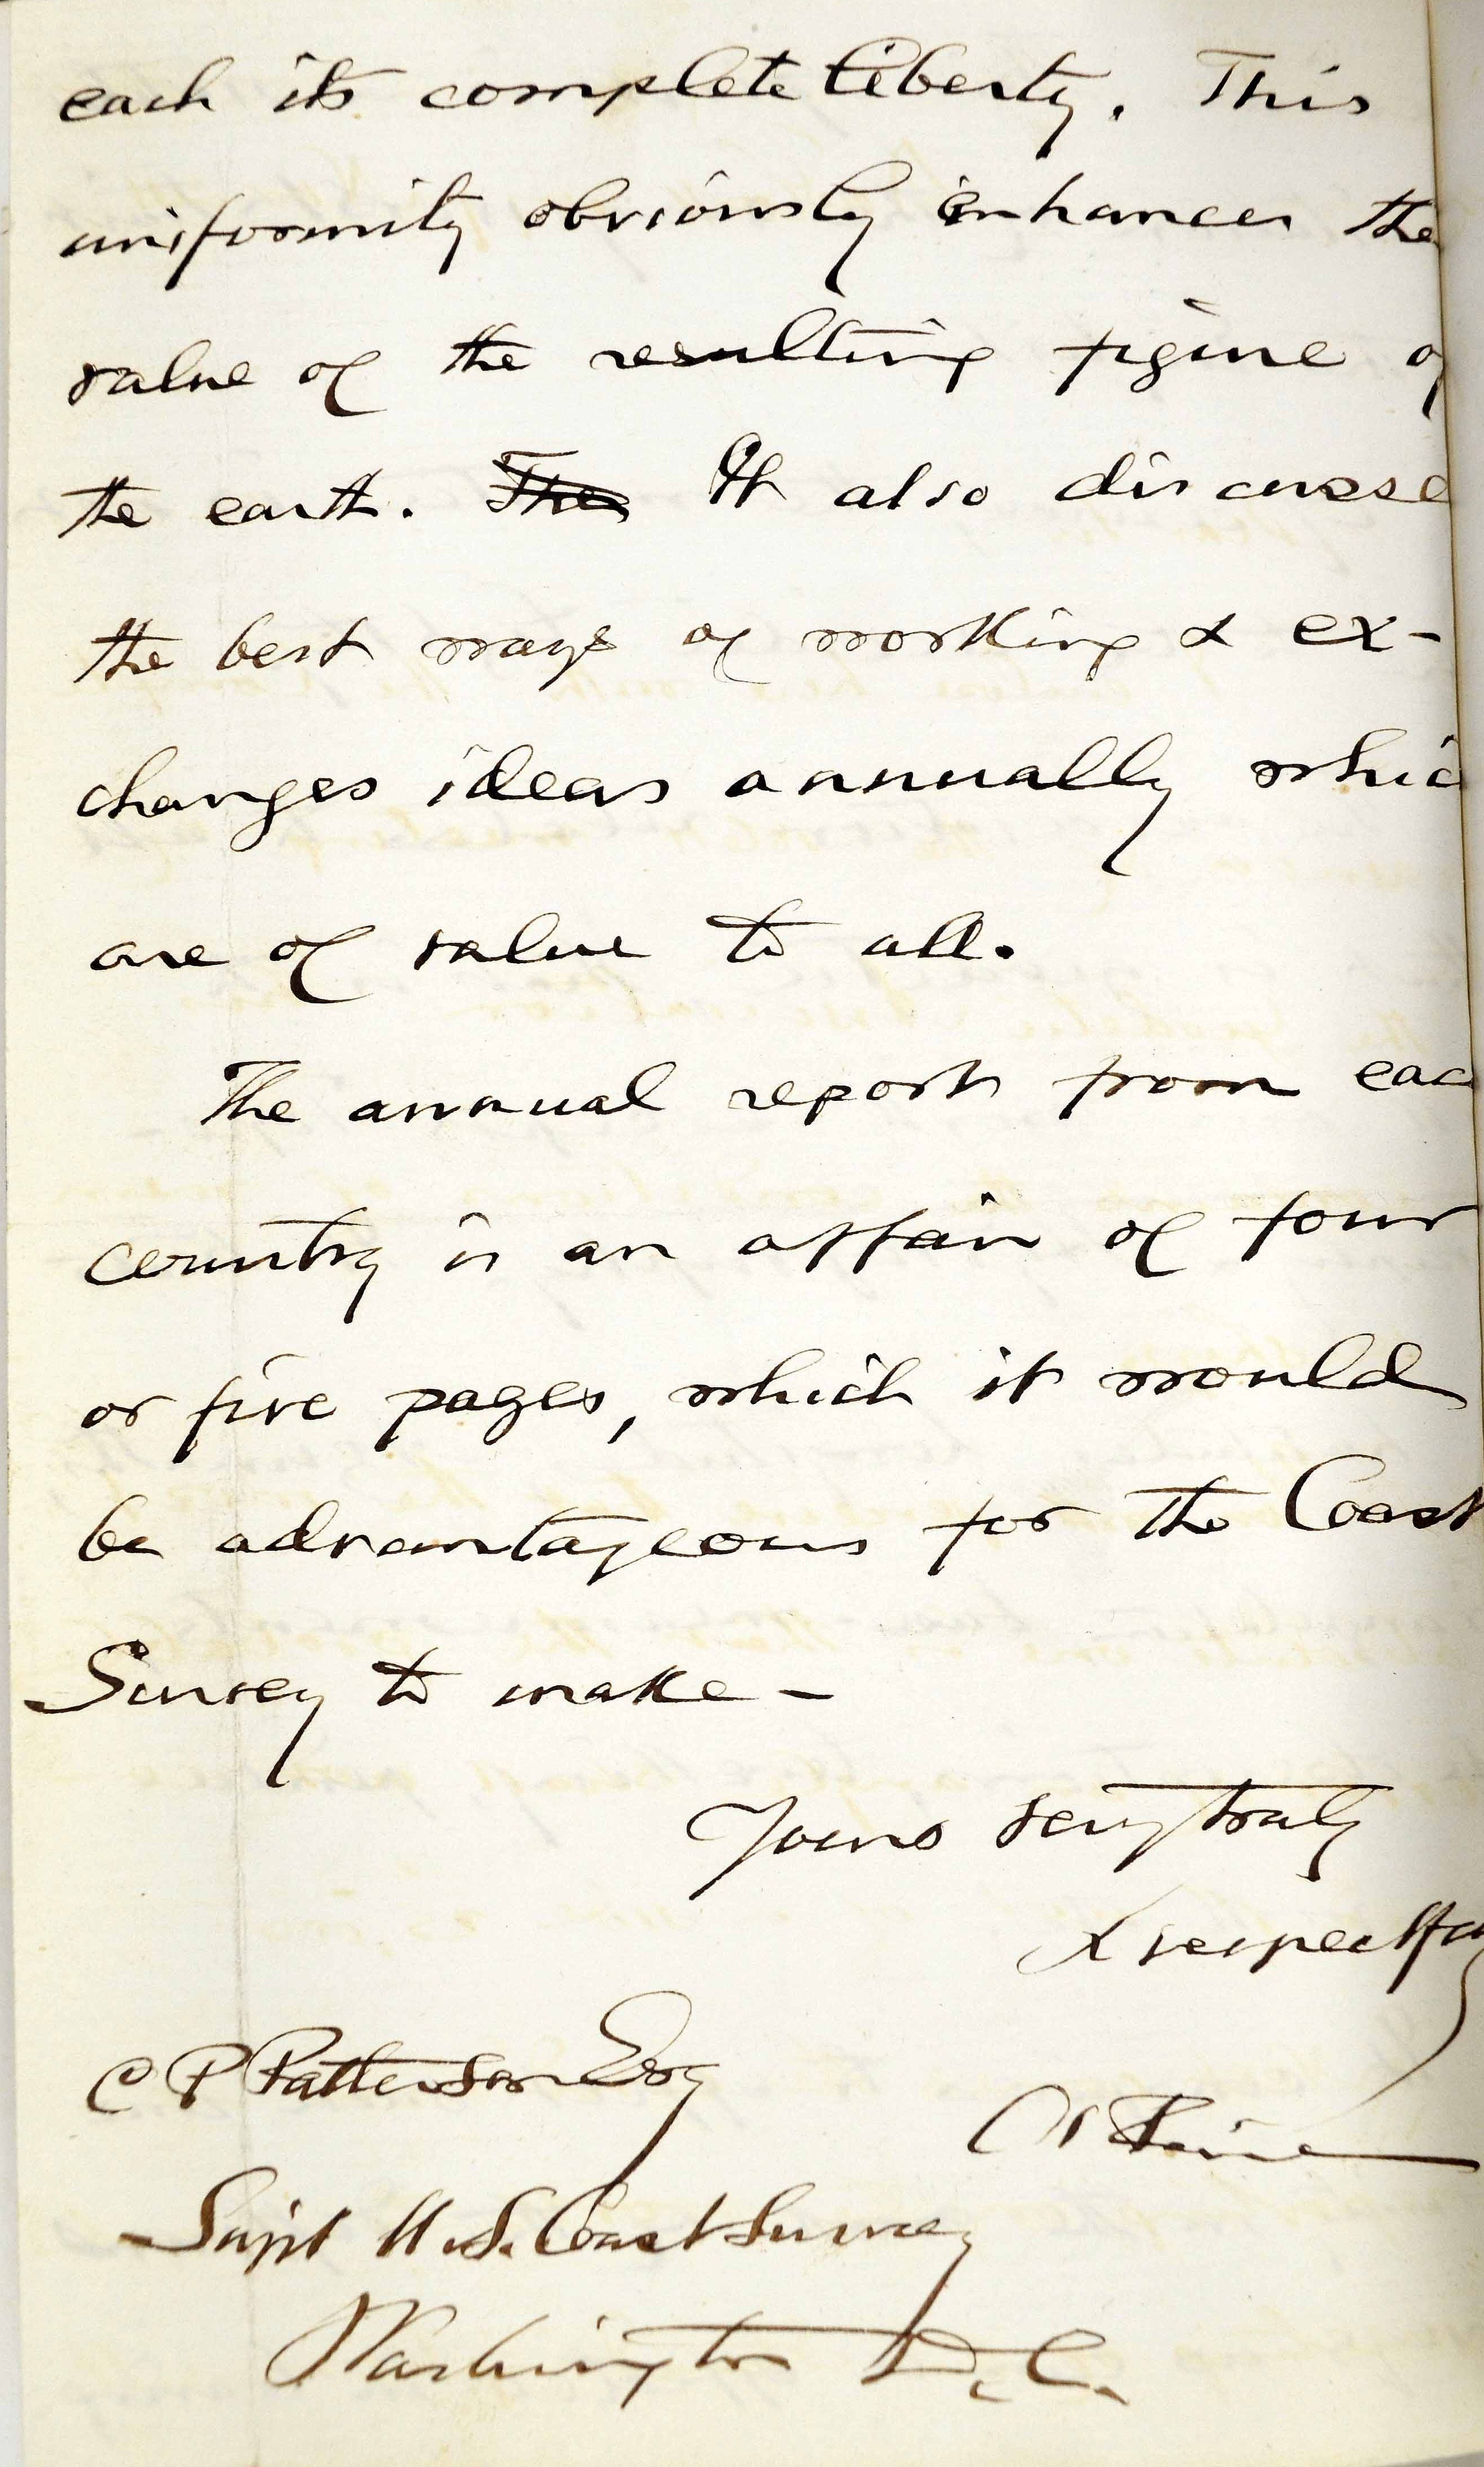 each its complete liberty. This
uniformity obviously enhances the
value of the resulting figure of
the earth. The It also discusse
the best ways of working & ex-
changes ideas annually whic
are of value to all.
The annual report from eac
country is an affair of four
or five pages, which it would
be advantageous for the Coast
Survey to make –
Yours very truly
& respectfu
C P Patterson Esq
C S Peirce
Supt U.S. Coast Survey
Washington D.C.